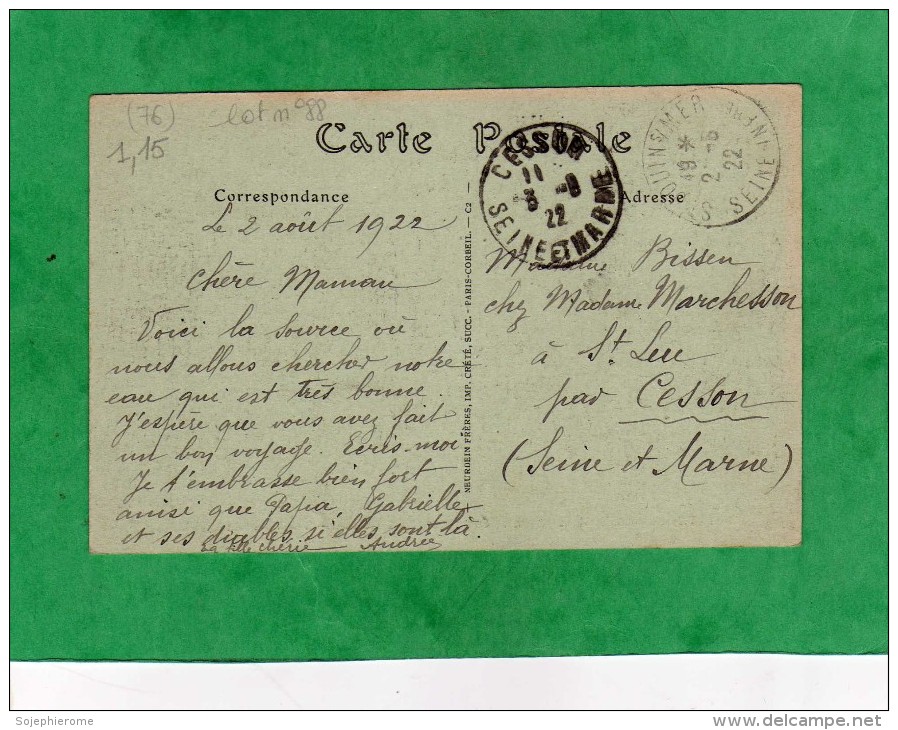 (76)
lot n° 88
1,15
Carte Postale
Correspondance
Adresse
Le 2 août 1922
Chère Maman
Voici la source où
nous allons chercher notre
eau qui est très bonne.
J'espère que vous avez fait
un bon voyage. Ecris-moi.
Je t'embrasse bien fort
ainsi que Papa, Gabrielle
et ses diables si elles sont là.
ta fille chérie Andrée
NEURDEIN FRÈRES, IMP. CRÉTÉ, SUCC. - PARIS-CORBEIL. — C2 —
CESSON
11
3 - 8
22
SEINE ET MARNE
19 *
2 - 8
22
SEINE INFRE
Madame Bissen
chez Madame Marchesson
à St. Leu
par Cesson
(Seine et Marne)
Sojephierome
www.delcampe.net